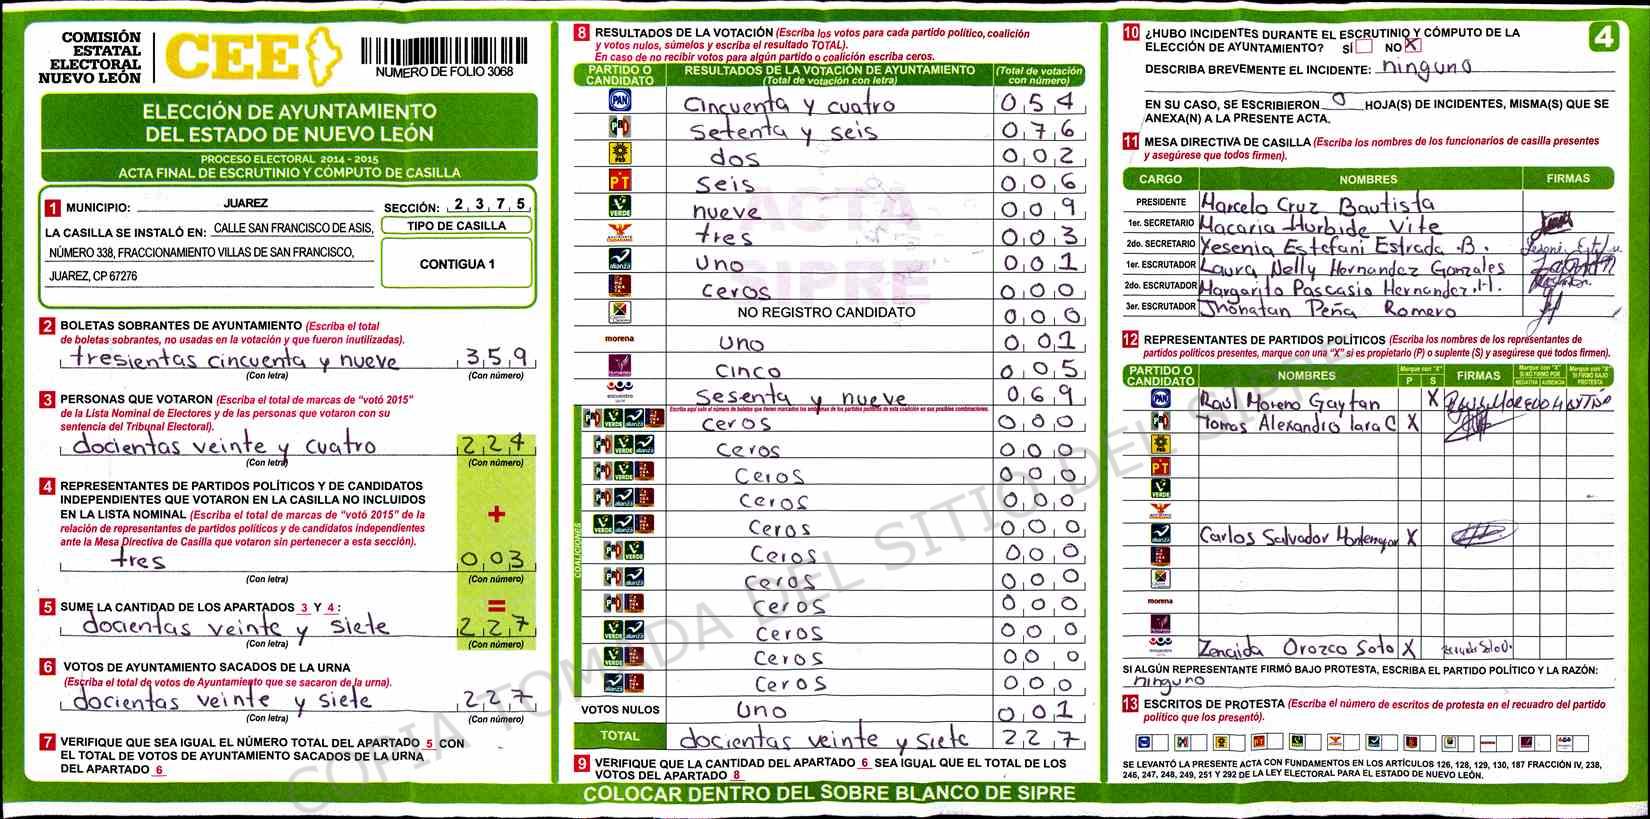 COMISIÓN
ESTATAL
ELECTORAL
NUEVO LEÓN
CEE
NUMERO DE FOLIO 3068
ELECCIÓN DE AYUNTAMIENTO
DEL ESTADO DE NUEVO LEÓN
PROCESO ELECTORAL 2014 - 2015
ACTA FINAL DE ESCRUTINIO Y CÓMPUTO DE CASILLA
1 MUNICIPIO: JUAREZ SECCIÓN: 2 3 7 5
LA CASILLA SE INSTALÓ EN: CALLE SAN FRANCISCO DE ASIS,
NÚMERO 338, FRACCIONAMIENTO VILLAS DE SAN FRANCISCO,
JUAREZ, CP 67276
TIPO DE CASILLA
CONTIGUA 1
2 BOLETAS SOBRANTES DE AYUNTAMIENTO (Escriba el total
de boletas sobrantes, no usadas en la votación y que fueron inutilizadas).
tresientas cincuenta y nueve 3 5 9
(Con letra) (Con número)
3 PERSONAS QUE VOTARON (Escriba el total de marcas de "votó 2015"
de la Lista Nominal de Electores y de las personas que votaron con su
sentencia del Tribunal Electoral).
docientas veinte y cuatro 2 2 4
(Con letra) (Con número)
4 REPRESENTANTES DE PARTIDOS POLÍTICOS Y DE CANDIDATOS
INDEPENDIENTES QUE VOTARON EN LA CASILLA NO INCLUIDOS
EN LA LISTA NOMINAL (Escriba el total de marcas de "votó 2015" de la
relación de representantes de partidos políticos y de candidatos independientes
ante la Mesa Directiva de Casilla que votaron sin pertenecer a esta sección).
+
tres 0 0 3
(Con letra) (Con número)
5 SUME LA CANTIDAD DE LOS APARTADOS 3 Y 4 : =
docientas veinte y siete 2 2 7
(Con letra) (Con número)
6 VOTOS DE AYUNTAMIENTO SACADOS DE LA URNA
(Escriba el total de votos de Ayuntamiento que se sacaron de la urna).
docientas veinte y siete 2 2 7
(Con letra) (Con número)
7 VERIFIQUE QUE SEA IGUAL EL NÚMERO TOTAL DEL APARTADO 5 CON
EL TOTAL DE VOTOS DE AYUNTAMIENTO SACADOS DE LA URNA
DEL APARTADO 6
8 RESULTADOS DE LA VOTACIÓN (Escriba los votos para cada partido político, coalición
y votos nulos, súmelos y escriba el resultado TOTAL).
En caso de no recibir votos para algún partido o coalición escriba ceros.
PARTIDO O CANDIDATO RESULTADOS DE LA VOTACIÓN DE AYUNTAMIENTO (Total de votación con letra) (Total de votación con número)
PAN cincuenta y cuatro 0 5 4
PRD setenta y seis 0 7 6
PRD dos 0 0 2
PT seis 0 0 6
VERDE nueve 0 0 9
tres 0 0 3
alianza uno 0 0 1
ceros 0 0 0
NO REGISTRO CANDIDATO 0 0 0
morena uno 0 0 1
cinco 0 0 5
encuentro sesenta y nueve 0 6 9
Escriba aquí solo el número de boletas que tienen marcados los emblemas de los partidos políticos de esta coalición en sus posibles combinaciones.
COALICIONES
ceros 0 0 0
ceros 0 0 0
ceros 0 0 0
ceros 0 0 0
ceros 0 0 0
ceros 0 0 0
ceros 0 0 0
ceros 0 0 0
ceros 0 0 0
ceros 0 0 0
ceros 0 0 0
VOTOS NULOS uno 0 0 1
TOTAL docientas veinte y siete 2 2 7
9 VERIFIQUE QUE LA CANTIDAD DEL APARTADO 6 SEA IGUAL QUE EL TOTAL DE LOS
VOTOS DEL APARTADO 8
COLOCAR DENTRO DEL SOBRE BLANCO DE SIPRE
ACTA
SIPRE
COPIA TOMADA DEL SITIO DEL SIPRE
4
10 ¿HUBO INCIDENTES DURANTE EL ESCRUTINIO Y CÓMPUTO DE LA
ELECCIÓN DE AYUNTAMIENTO? SÍ NO X
DESCRIBA BREVEMENTE EL INCIDENTE: ninguno
EN SU CASO, SE ESCRIBIERON 0 HOJA(S) DE INCIDENTES, MISMA(S) QUE SE
ANEXA(N) A LA PRESENTE ACTA.
11 MESA DIRECTIVA DE CASILLA (Escriba los nombres de los funcionarios de casilla presentes
y asegúrese que todos firmen).
CARGO NOMBRES FIRMAS
PRESIDENTE Marcelo Cruz Bautista
1er. SECRETARIO Macaria Iturbide Vite
2do. SECRETARIO Yesenia Estefani Estrada B.
1er. ESCRUTADOR Laura Nelly Hernandez Gonzales
2do. ESCRUTADOR Margarito Pascasio Hernandez H.
3er. ESCRUTADOR Jhonatan Peña Romero
12 REPRESENTANTES DE PARTIDOS POLÍTICOS (Escriba los nombres de los representantes de
partidos políticos presentes, marque con una "X" si es propietario (P) o suplente (S) y asegúrese que todos firmen).
PARTIDO O CANDIDATO NOMBRES Marque con "X" P S FIRMAS Marque con "X" SI NO FIRMÓ POR NEGATIVA AUSENCIA Marque con "X" SI FIRMÓ BAJO PROTESTA
PAN Raul Moreno Gaytan X RAUL MORENO GAYTAN
Tomas Alexandro Lara C X
PRD
PT
VERDE
alianza Carlos Salvador Montemayor X
morena
encuentro Zenaida Orozco Soto X
SI ALGÚN REPRESENTANTE FIRMÓ BAJO PROTESTA, ESCRIBA EL PARTIDO POLÍTICO Y LA RAZÓN:
ninguno
13 ESCRITOS DE PROTESTA (Escriba el número de escritos de protesta en el recuadro del partido
político que los presentó).
SE LEVANTÓ LA PRESENTE ACTA CON FUNDAMENTOS EN LOS ARTÍCULOS 126, 128, 129, 130, 187 FRACCIÓN IV, 238,
246, 247, 248, 249, 251 Y 292 DE LA LEY ELECTORAL PARA EL ESTADO DE NUEVO LEÓN.